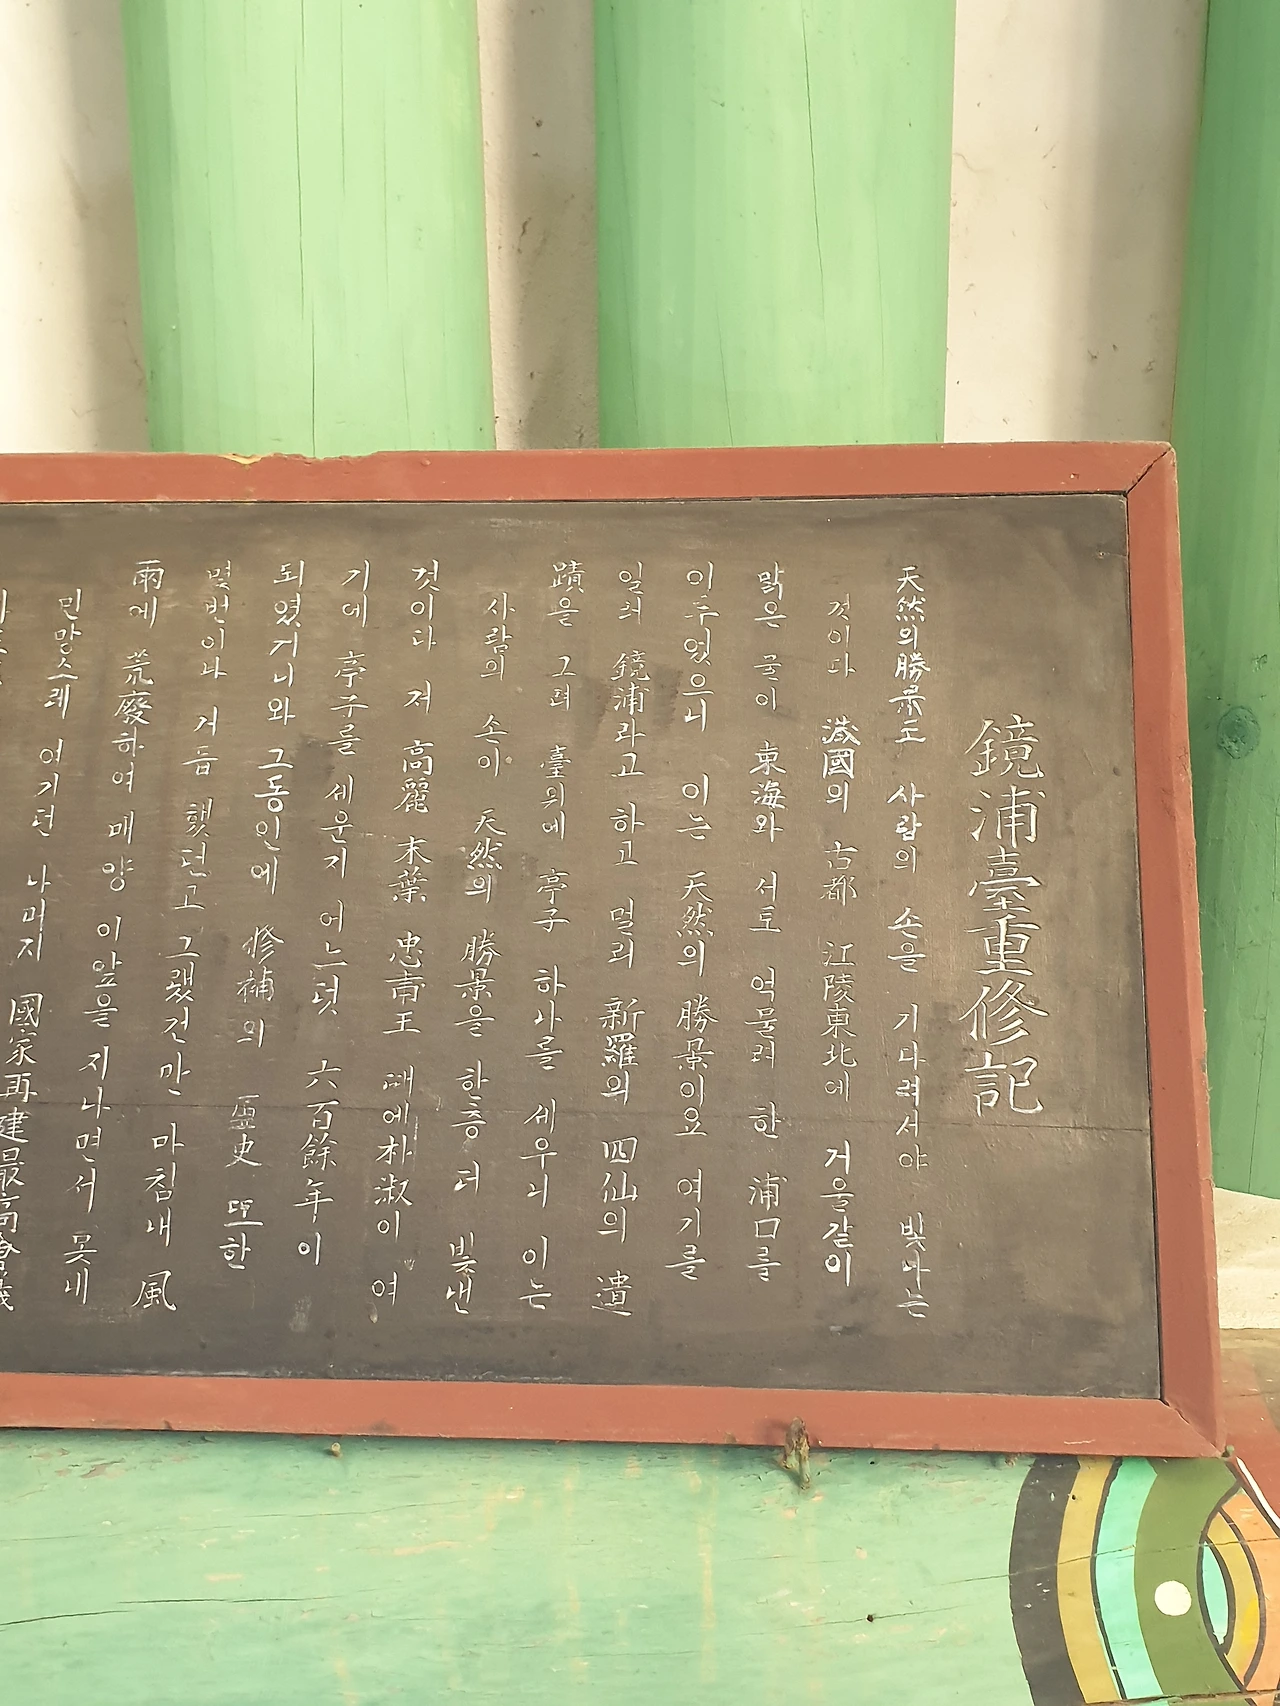 鏡浦臺重修記
天然의勝景도 사람의 손을 기다려서야 빛나는
것이다 濊國의 古都 江陵東北에 거울같이
맑은 물이 東海와 서로 역물려 한 浦口를
이루었으니 이는 天然의 勝景이요 여기를
일러 鏡浦라고 하고 멀리 新羅의 四仙의 遺
蹟을 그려 臺위에 亭子 하나를 세우니 이는
사람의 손이 天然의 勝景을 한층 더 빛낸
것이다 저 高麗 末葉 忠肅王 때에朴淑이 여
기에 亭子를 세운지 어느덧 六百餘年이
되였거니와 그동인에 修補의 歷史 또한
몇번이나 거듭 했던고 그랬건만 마침내 風
雨에 荒廢하여 매양 이앞을 지나면서 못내
민망스레 여기던 나머지 國家再建最高會議